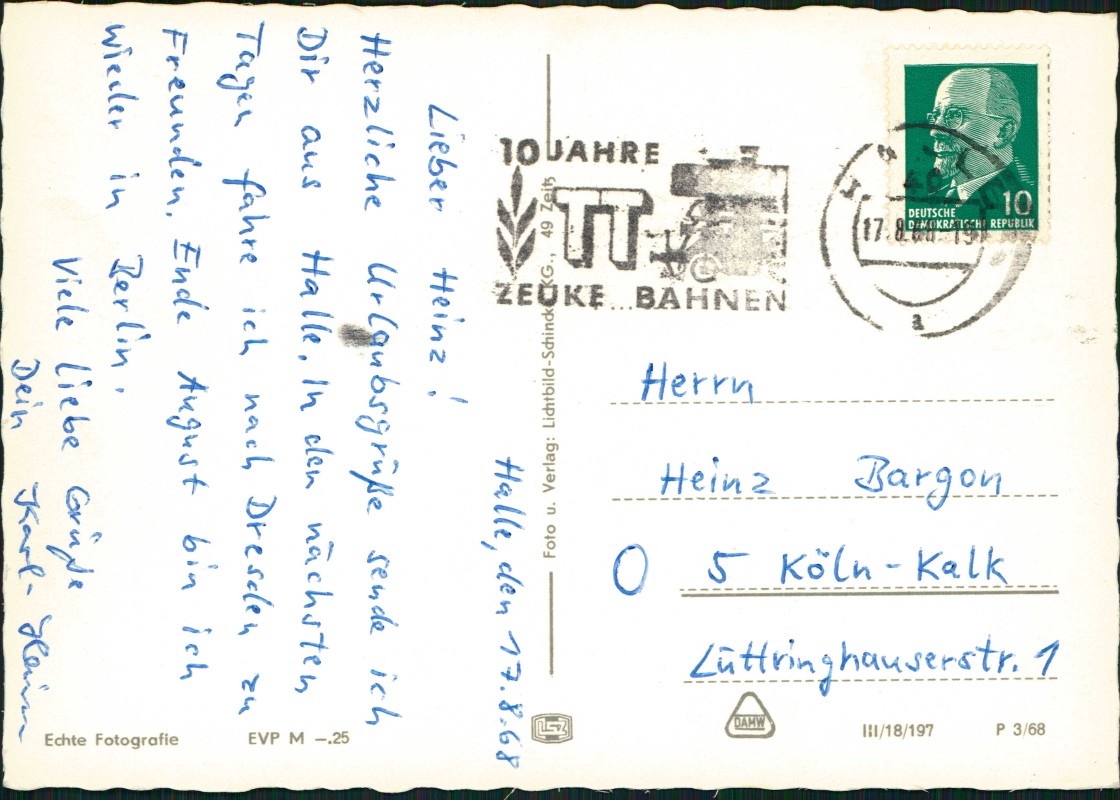 Halle, den 17.8.68
Lieber Heinz!
Herzliche Urlaubsgrüße sende ich
Dir aus Halle. In den nächsten
Tagen fahre ich nach Dresden zu
Freunden. Ende August bin ich
wieder in Berlin.
Viele liebe Grüße
Dein Karl-Heinz
Echte Fotografie
EVP M –.25
Foto u. Verlag: Lichtbild-Schincke KG., 49 Zeitz
10 JAHRE
TT
ZEUKE BAHNEN
17.8.68-19
a
10
DEUTSCHE
DEMOKRATISCHE REPUBLIK
Herrn
Heinz Bargon
O 5 Köln-Kalk
Lüttringhauserstr. 1
DAMW
III/18/197
P 3/68